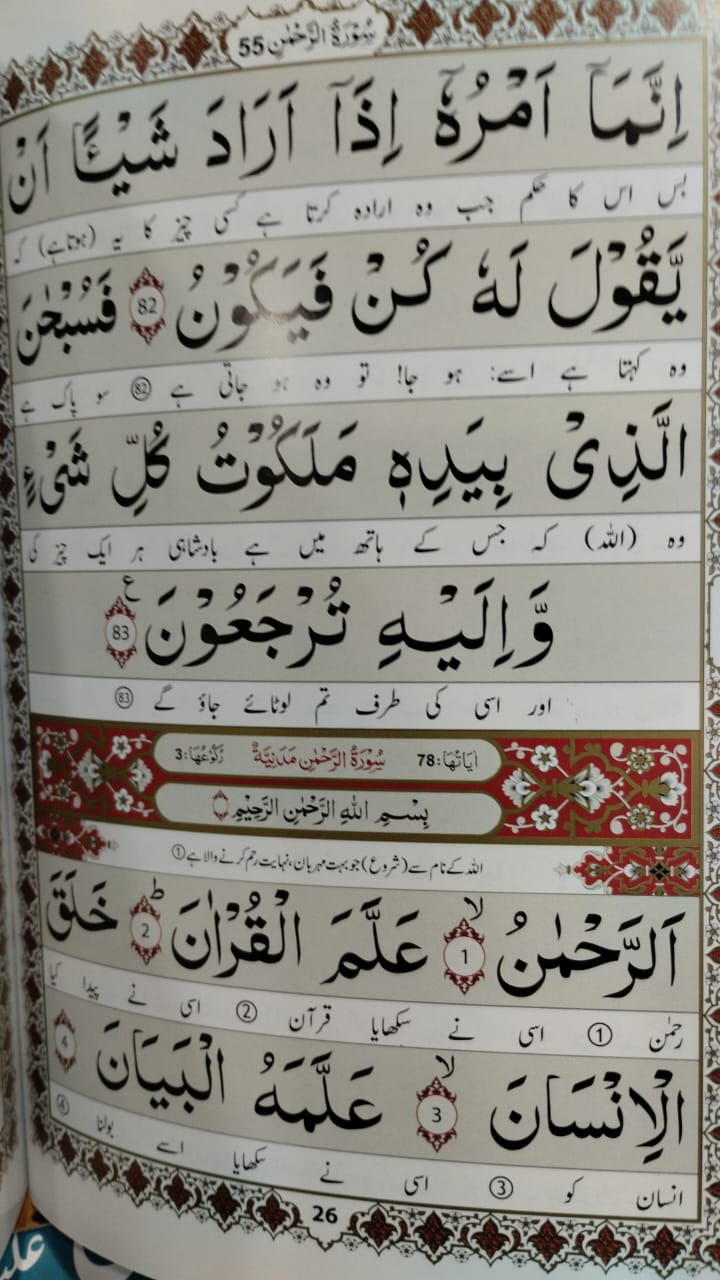 سُوْرَةُ الرَّحْمٰن 55
اِنَّمَاۤ اَمْرُهٗۤ اِذَاۤ اَرَادَ شَيْـًٔا اَنْ
بس اس کا حکم جب وہ ارادہ کرتا ہے کسی چیز کا یہ (ہوتا ہے) کہ
يَّقُوْلَ لَهٗ كُنْ فَيَكُوْنُ 82 فَسُبْحٰنَ
وہ کہتا ہے اسے: ہو جا! تو وہ ہو جاتی ہے 82 سو پاک ہے
الَّذِىْ بِيَدِهٖ مَلَكُوْتُ كُلِّ شَىْءٍ
وہ (اللہ) کہ جس کے ہاتھ میں ہے بادشاہی ہر ایک چیز کی
وَّاِلَيْهِ تُرْجَعُوْنَ 83 ع
اور اسی کی طرف تم لوٹائے جاؤ گے 83
اٰيَاتُهَا: 78 سُوْرَةُ الرَّحْمٰنِ مَدَنِيَّةٌ رُكُوْعُهَا: 3
بِسْمِ اللهِ الرَّحْمٰنِ الرَّحِيْمِ
اللہ کے نام سے (شروع) جو بہت مہربان، نہایت رحم کرنے والا ہے ①
اَلرَّحْمٰنُ ۙ 1 عَلَّمَ الْقُرْاٰنَ ؕ 2 خَلَقَ
رحمٰن ① اسی نے سکھایا قرآن ② اسی نے پیدا کیا
الْاِنْسَانَ ۙ 3 عَلَّمَهُ الْبَيَانَ 4
انسان کو ③ اسی نے سکھایا اسے بولنا ④
26